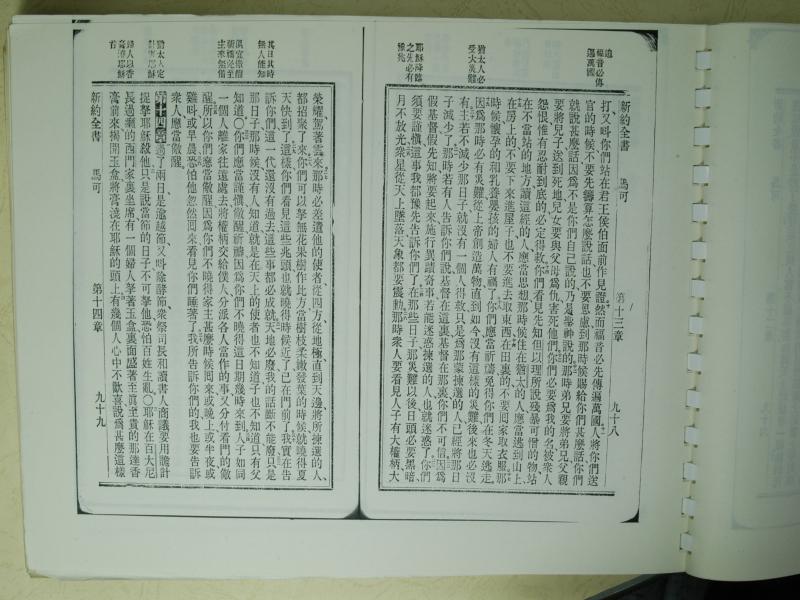 遍萬國
福音必傳
猶太人必
受大災難
耶穌降臨
之先必有
豫兆
新約全書 馬可 第十三章 九十八
打又呌你們站在君王侯伯面前作見證然而福音必先傳遍萬國人將你們送
官的時候不要先籌算怎麼說話也不要思慮到那時候賜給你們甚麼話你們
就說甚麼話因爲不是你們自己說的乃是聖神說的那時弟兄要將弟兄父親
要將兒子送到死地兒女要與父母爲仇害死他們你們必要爲我的名被衆人
怨恨惟有忍耐到底的必定得救你們看見先知但以理所說殘暴可憎的物站
在不當站的地方讀這經的人應當思想那時候住在猶太的人應當逃到山上
在房上的不要下來進屋子也不要進去取東西在田裏的不要回家取衣服那
時候懷孕的和乳養嬰孩的婦人有禍了你們應當祈禱免得你們在冬天逃走
因爲那時必有災難從上帝創造萬物直到如今沒有這樣的災難後來也必沒
有主若不減少那日子就沒有一個人得救只是爲那蒙揀選的人已經將那日
子減少了那時若有人告訴你們說基督在這裏基督在那裏你們不可信因爲
假基督假先知將要起來施行異蹟奇事若能迷惑揀選的人也就迷惑了你們
須要謹愼這事我都豫先告訴你們了在那些日子那災難以後日頭必要黑暗
月不放光衆星從天上墜落天象都要震動那時衆人要看見人子有大權柄大
其日其時
無人能知
宜儆醒
祈禱
猶太人定
計害耶穌
婦人以香
膏澆耶穌
首
榮耀駕著雲來那時必差遣他的使者從四方從地極直到天邊將所揀選的人
都招聚了來你們可以拏無花果樹作比方當樹枝柔嫩發葉的時候就曉得夏
天快到了這樣你們看見這些兆頭也就曉得時候近了已在門前了我實在告
訴你們這一代還沒有過去這些事都必成就天地必廢我的話斷不能廢只是
那日子那時候沒有人知道就是在天上的使者也不知道子也不知道只有父
知道〇你們應當謹愼儆醒祈禱因爲你們不曉得這日期幾時來到人子如同
一個人離家往遠處去將權柄交給僕人分派各人當作的事又分付看門的儆
醒所以你們應當儆醒因爲你們不曉得家主甚麼時候回來或晚上或半夜或
雞呌或早晨恐怕他忽然回來看見你們睡著了我所告訴你們的我也要告訴
衆人應當儆醒
第十四章過了兩日是逾越節又呌除酵節衆祭司長和讀書人商議要用詭計
捉拏耶穌殺他只是說當節的日子不可拏他恐怕百姓生亂〇耶穌在百大尼
長過癩的西門家裏坐席有一個婦人拏著玉盒裏面盛著至眞至貴的那達香
膏前來揭開玉盒將膏澆在耶穌的頭上有幾個人心中不歡喜說爲甚麼這樣
新約全書 馬可 第十四章 九十九